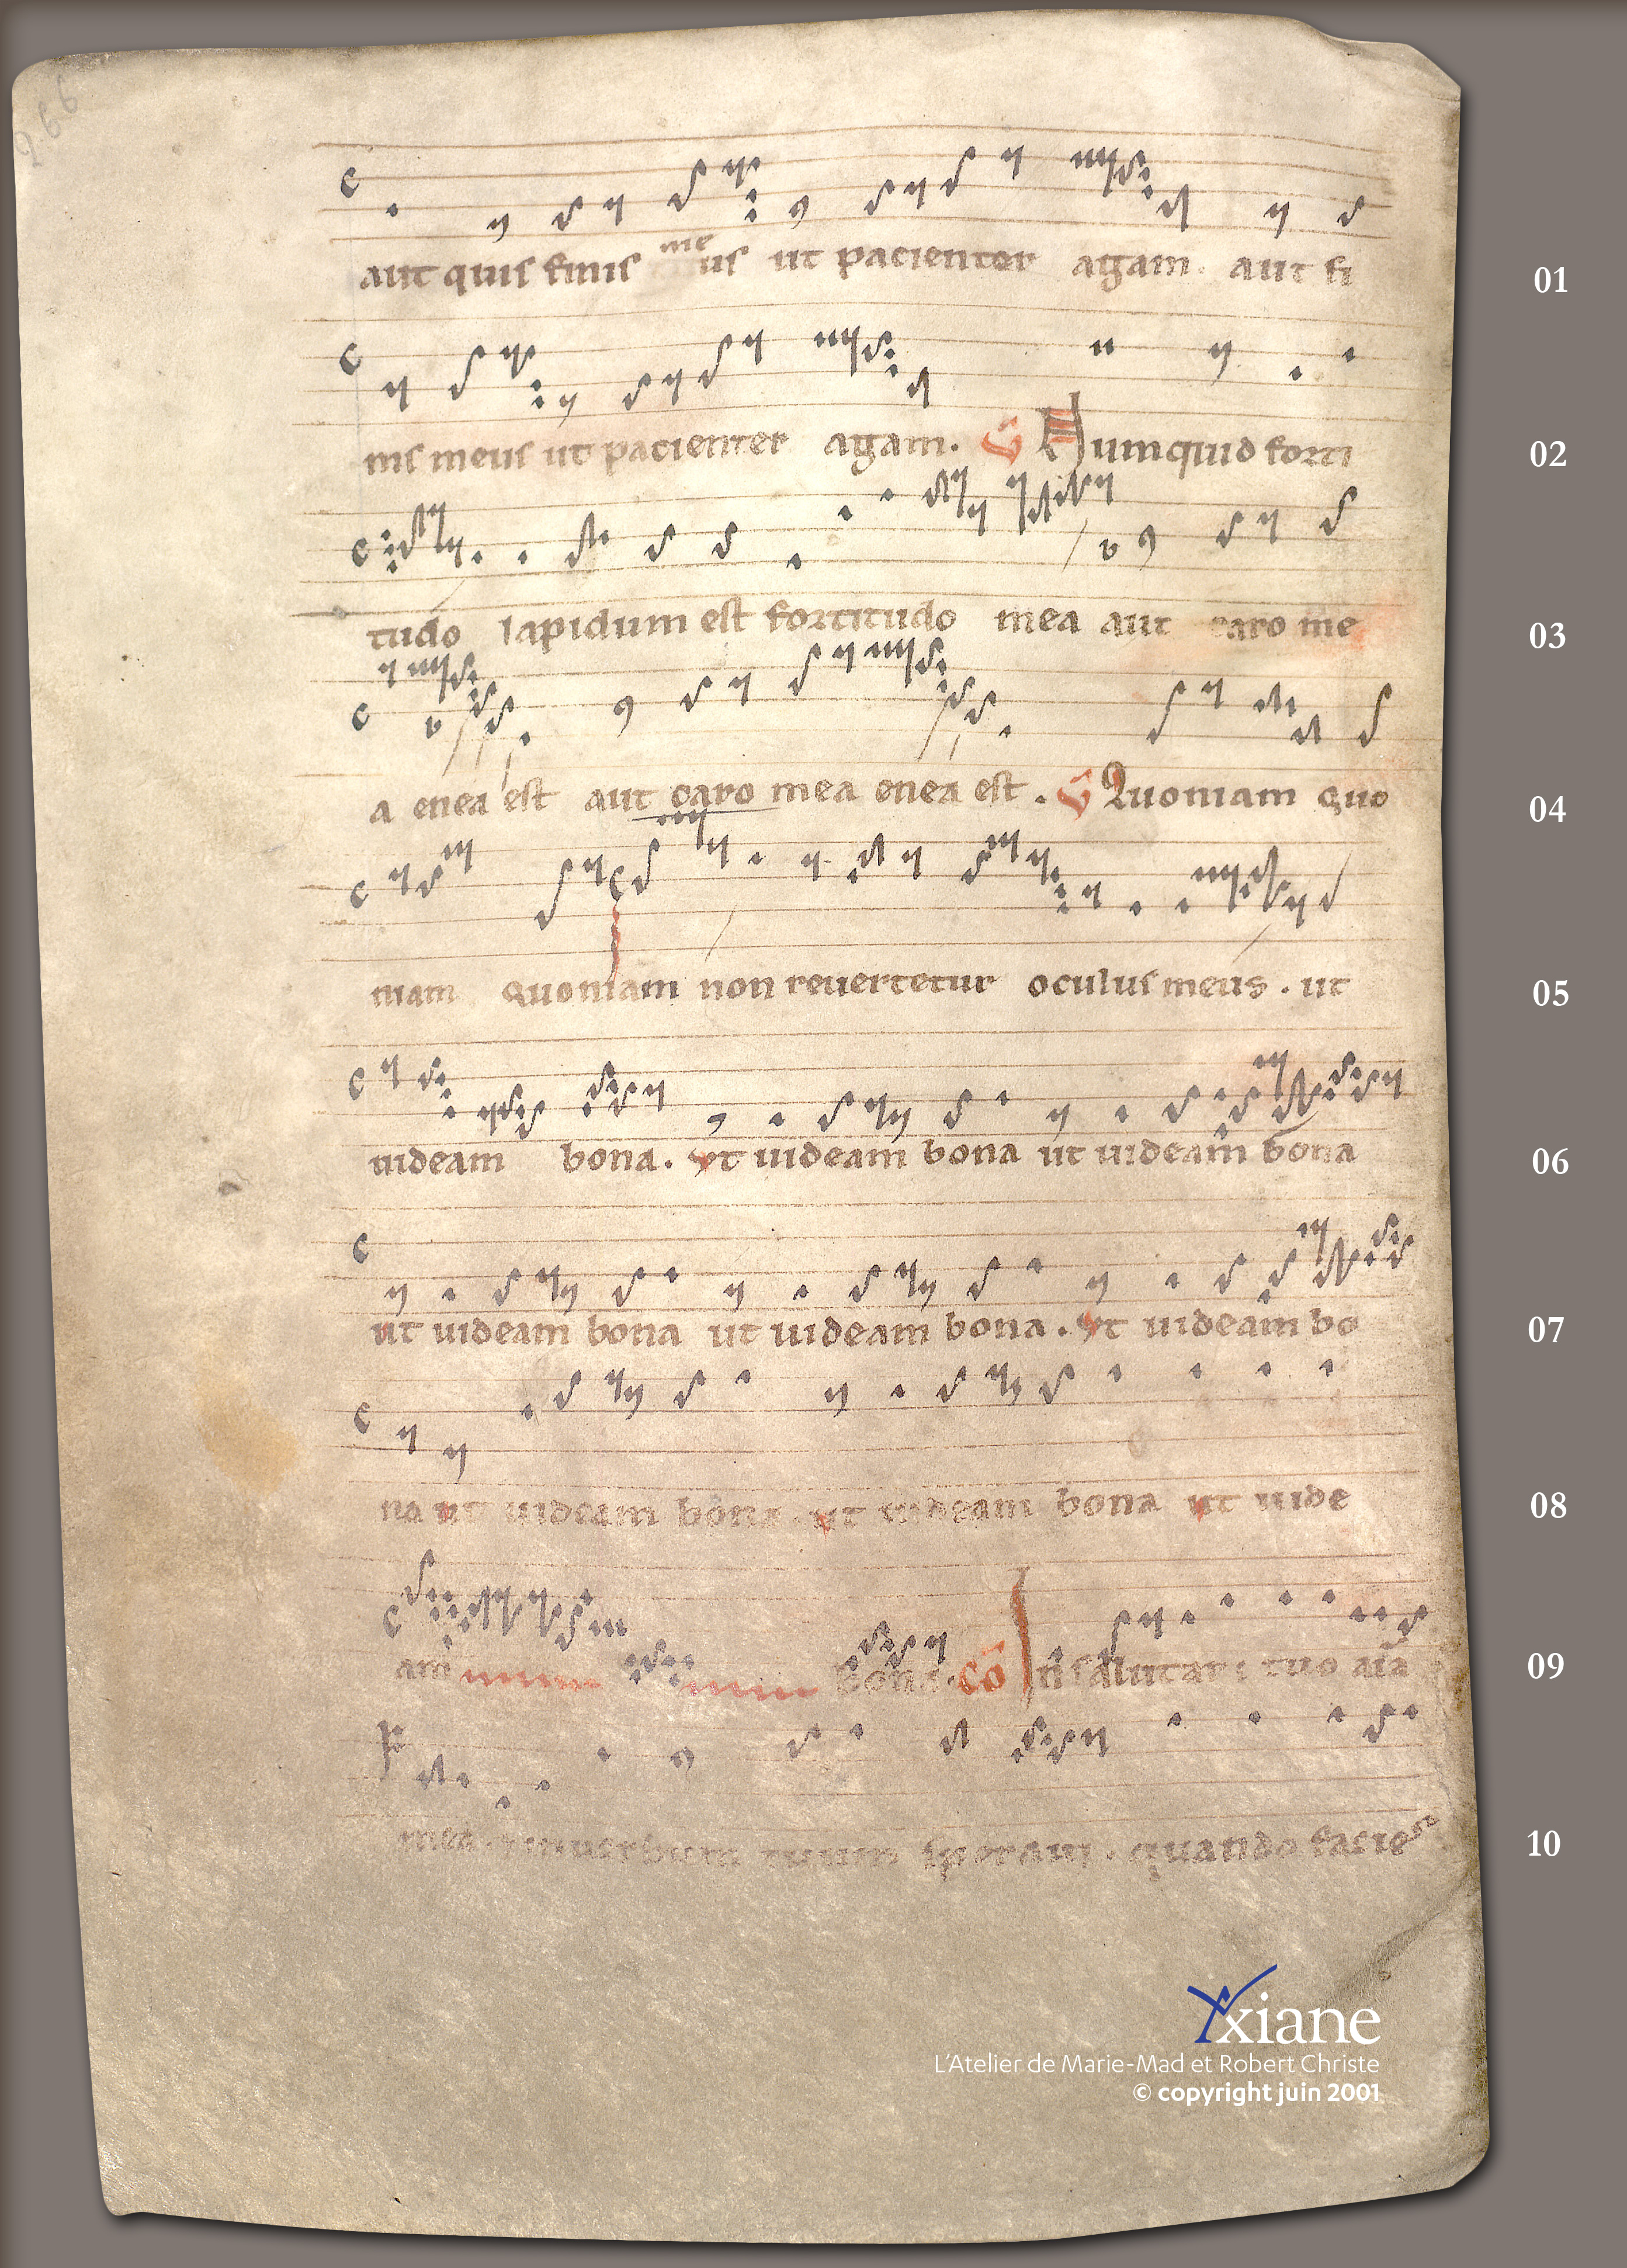 266
aut quis finis meus ut pacienter agam. aut fi
01
nis meus ut pacienter agam. V̄ Numquid forti
02
tudo lapidum est fortitudo mea aut caro me
03
a enea est aut caro mea enea est. V̄ Quoniam quo
04
niam quoniam non reuertetur oculus meus. ut
05
uideam bona. ut uideam bona ut uideam bona
06
ut uideam bona ut uideam bona. ut uideam bo
07
na ut uideam bona. ut uideam bona ut uide
08
am bona. cō In salutari tuo aīa
09
mea. in uerbum tuum speraui. quando facies
10
Xxiane
L'Atelier de Marie-Mad et Robert Christe
© copyright juin 2001